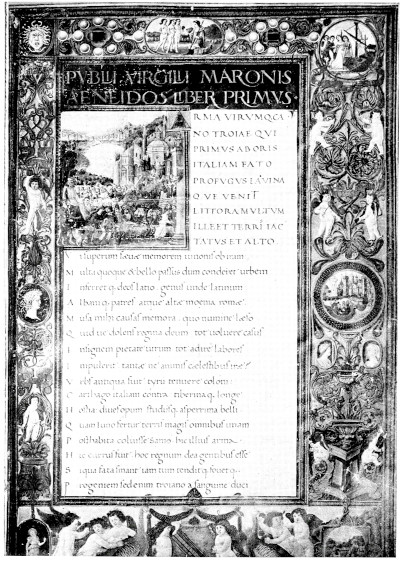 PVBLII VIRGILII MARONIS
AENEIDOS LIBER PRIMVS
RMA VIRVMQ CA
NO TROIAE QVI
PRIMVS ABORIS
ITALIAM FATO
PROFVGVS LAVINA
QVE VENIT
LITTORA MVLTVM
ILLE ET TERRIS IAC
TATVS ET ALTO
V i superum saeuae memorem iunonis ob iram
M ulta quoque & bello passus dum conderet urbem
I nferret q deos latio genus unde latinum
A lbani q patres atque altae moenia romae
M usa mihi causas memora quo numine laeso
Q uid ue dolens regina deum tot uoluere casus
I nsignem pietate uirum tot adire labores
I mpulerit tantae ne animis caelestibus irae
V rbs antiqua fuit tyrii tenuere coloni
C arthago italiam contra tiberina q longe
O stia diues opum studiis q asperrima belli
Q uam iuno fertur terris magis omnibus unam
P osthabita coluisse samo hic illius arma
H ic currus fuit hoc regnum dea gentibus esse
S i qua fata sinant iam tum tendit q fouet q
P rogeniem sed enim troiano a sanguine duci